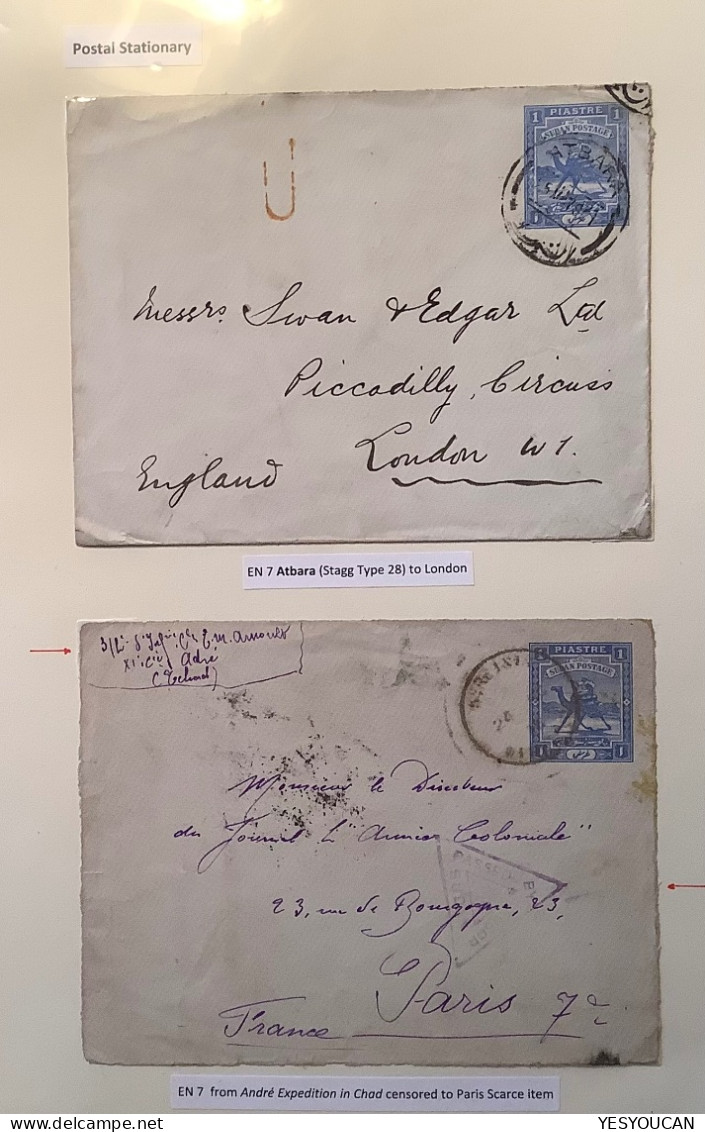 Postal Stationary
1 PIASTRE 1
SUDAN POSTAGE
ATBARA
U
1 1
Messrs. Swan & Edgar Ltd
Piccadilly, Circuss
London W1.
England
EN 7 Atbara (Stagg Type 28) to London
E.M.
Adré
(Tchad)
PIASTRE 1
SUDAN POSTAGE
24
1 1
Monsieur le Directeur
du Journal L'"Armée Coloniale"
PASSED BY
23, rue de Bourgogne, 23,
Paris 7e
France
EN 7 from André Expedition in Chad censored to Paris Scarce item
YESYOUCAN